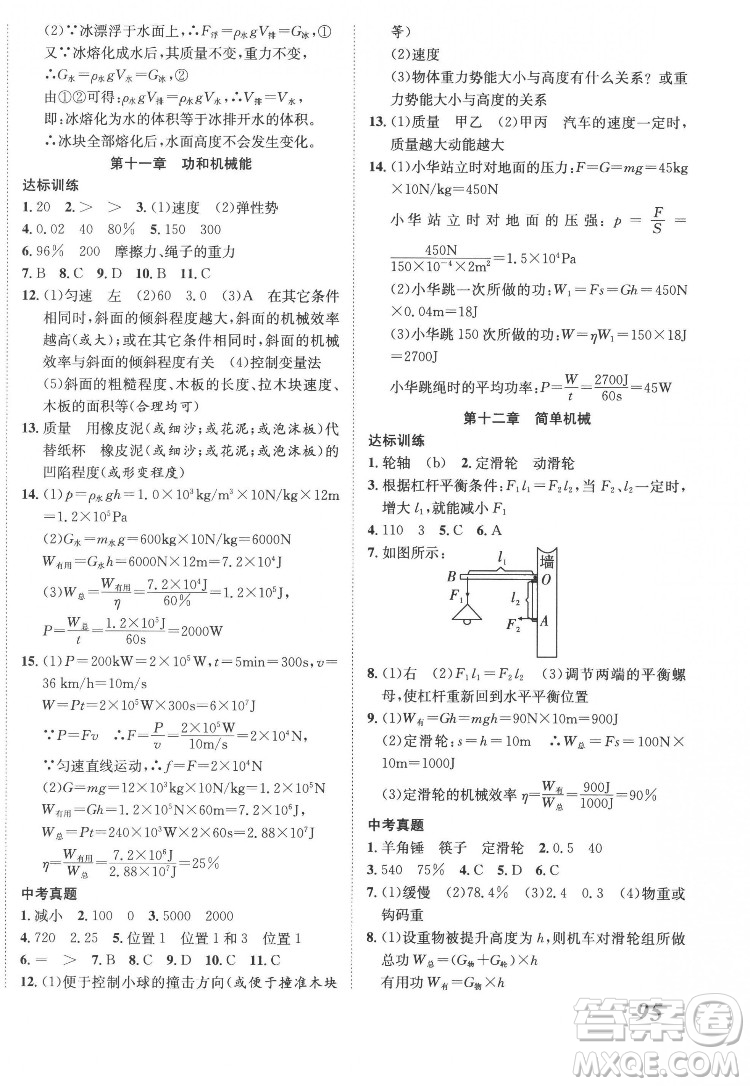 (2)∵冰漂浮于水面上,∴F浮=ρ水gV排=G冰,①
又∵冰熔化成水后,其质量不变,重力不变,
∴G水=ρ水gV水=G冰,②
由①②可得:ρ水gV排=ρ水gV水,∴V水=V排,
即:冰熔化为水的体积等于冰排开水的体积。
∴冰块全部熔化后,水面高度不会发生变化。
第十一章 功和机械能
达标训练
1.20 2.> > 3.(1)速度 (2)弹性势
4.0.02 40 80% 5.150 300
6.96% 200 摩擦力、绳子的重力
7.B 8.C 9.D 10.B 11.C
12.(1)匀速 左 (2)60 3.0 (3)A 在其它条件
相同时,斜面的倾斜程度越大,斜面的机械效率
越高(或大);或其它条件相同时,斜面的机械
效率与斜面的倾斜程度有关 (4)控制变量法
(5)斜面的粗糙程度、木板的长度、拉木块速度、
木板的面积等(合理均可)
13.质量 用橡皮泥(或细沙;或花泥;或泡沫板)代
替纸杯 橡皮泥(或细沙;或花泥;或泡沫板)的
凹陷程度(或形变程度)
14.(1)p=ρ水gh=1.0×10³kg/m³×10N/kg×12m
=1.2×10⁵Pa
(2)G水=m水g=600kg×10N/kg=6000N
W有用=G水h=6000N×12m=7.2×10⁴J
(3)W总=W有用/η=7.2×10⁴J/60%=1.2×10⁵J
P=W总/t=1.2×10⁵J/60s=2000W
15.(1)P=200kW=2×10⁵W,t=5min=300s,v=
36 km/h=10m/s
W=Pt=2×10⁵W×300s=6×10⁷J
∵P=Fv ∴F=P/v=2×10⁵W/10m/s=2×10⁴N
∵匀速直线运动,∴f=F=2×10⁴N
(2)G=mg=12×10³kg×10N/kg=1.2×10⁵N
W有用=Gh=1.2×10⁵N×600m=7.2×10⁷J
W总=Pt=240×10³W×20×60s=2.88×10⁸J
η=W有用/W总=7.2×10⁷J/2.88×10⁸J=25%
中考真题
1.减小 2.100 0 3.5000 2000
4.720 2.25 5.位置1 位置1和3 位置1
6.= > 7.C 8.C 9.D 10.B 11.C
12.(1)便于控制小球的撞击方向(或便于撞准木块
等)
(2)速度
(3)物体重力势能大小与高度有什么关系?或重
力势能大小与高度的关系
13.(1)质量 甲乙 (2)甲丙 汽车的速度一定时,
质量越大动能越大
14.(1)小华站立时对地面的压力:F=G=mg=45kg
×10N/kg=450N
小华站立时对地面的压强:p=F/S=
450N/150×10⁻⁴×2m²=1.5×10⁴Pa
(2)小华跳一次所做的功:W₁=Fs=Gh=450N
×0.04m=18J
(3)小华跳150次所做的功:W=ηW₁=150×18J
=2700J
小华跳绳时的平均功率:P=W/t=2700J/60s=45W
第十二章 简单机械
达标训练
1.轮轴 (b) 2.定滑轮 动滑轮
3.根据杠杆平衡条件:F₁l₁=F₂l₂,当F₂l₂一定时,
增大l₁,就能减小F₁
4.110 3 5.C 6.A
7.如图所示:
l₁
墙
B
O
F₁
l₂
F₂
A
8.(1)右 (2)F₁l₁=F₂l₂ (3)调节两端的平衡螺
母,使杠杆重新回到水平平衡位置
9.(1)W有=Gh=mgh=90N×10m=900J
(2)定滑轮:s=h=10m ∴W总=Fs=100N×
10m=1000J
(3)定滑轮的机械效率:η=W有/W总=900J/1000J=90%
中考真题
1.羊角锤 筷子 定滑轮 2.0.5 40
3.540 75% 4.C 5.D 6.C
7.(1)缓慢 (2)78.4% (3)0.5 (4)物重或
钩码重
8.(1)设重物被提升高度为h,则机车对滑轮组所做
总功W总=(G物+G轮)×h
有用功W有=G物×h
95
答案圈
MXQE.COM